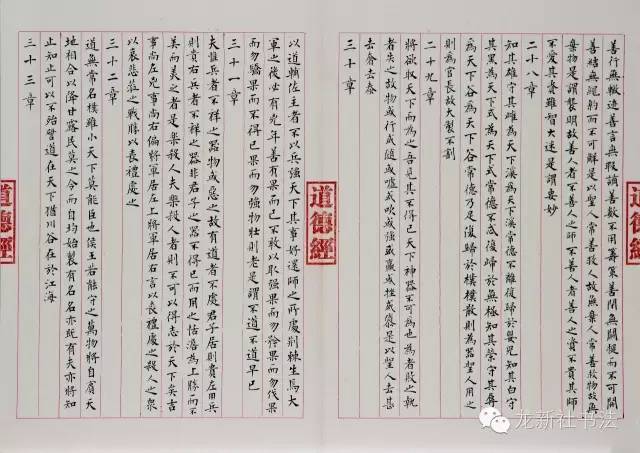 道德經
善行無轍迹善言無瑕讁善數不用籌策善閉無關楗而不可開
善結無繩約而不可解是以聖人常善救人故無棄人常善救物故無
棄物是謂襲明故善人者不善人之師不善人者善人之資不貴其師
不愛其資雖智大迷是謂要妙
二十八章
知其雄守其雌為天下溪為天下溪常德不離復歸於嬰兒知其白守
其黑為天下式為天下式常德不忒復歸於無極知其榮守其辱
為天下谷為天下谷常德乃足復歸於樸樸散則為器聖人用之
則為官長故大製不割
二十九章
將欲取天下而為之吾見其不得已天下神器不可為也為者敗之執
者失之故物或行或隨或噓或吹或強或羸或挫或隳是以聖人去甚
去奢去泰
三十章
道德經
以道輔佐主者不以兵強天下其事好還師之所處荊棘生焉大
軍之後必有凶年善有果而已不敢以取强果而勿矜果而勿伐果
而勿驕果而不得已果而勿强物壯則老是謂不道不道早已
三十一章
夫隹兵者不祥之器物或惡之故有道者不處君子居則貴左用兵
則貴右兵者不祥之器非君子之器不得已而用之恬澹為上勝而不
美而美之者是樂殺人夫樂殺人者則不可以得志於天下矣吉
事尚左凶事尚右偏將軍居左上將軍居右言以喪禮處之殺人之衆
以哀悲蒞之戰勝以喪禮處之
三十二章
道無常名樸雖小天下莫能臣也侯王若能守之萬物將自賓天
地相合以降甘露民莫之令而自均始製有名名亦既有夫亦將知
止知止可以不殆譬道在天下猶川谷在於江海
三十三章
道德經
龙新社书法